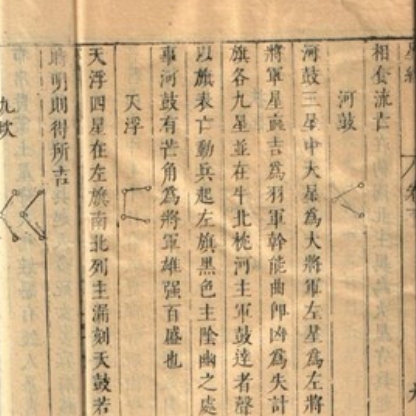 相食流亡
河鼓
河鼓三星中大星為大將軍左星為左將
將軍星齊吉為羽軍幹能曲即凶為失計
旗各九星並在牛北枕河主軍鼓達者聲
以旗表亡動兵起左旗黑色主陰幽之處
事河鼓有芒角為將軍雄强百盛也
天浮
天浮四星在左旗南北列主漏刻天鼓若
明則得所吉
九坎